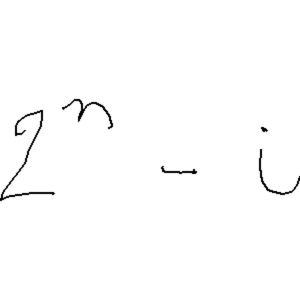 2ⁿ - i